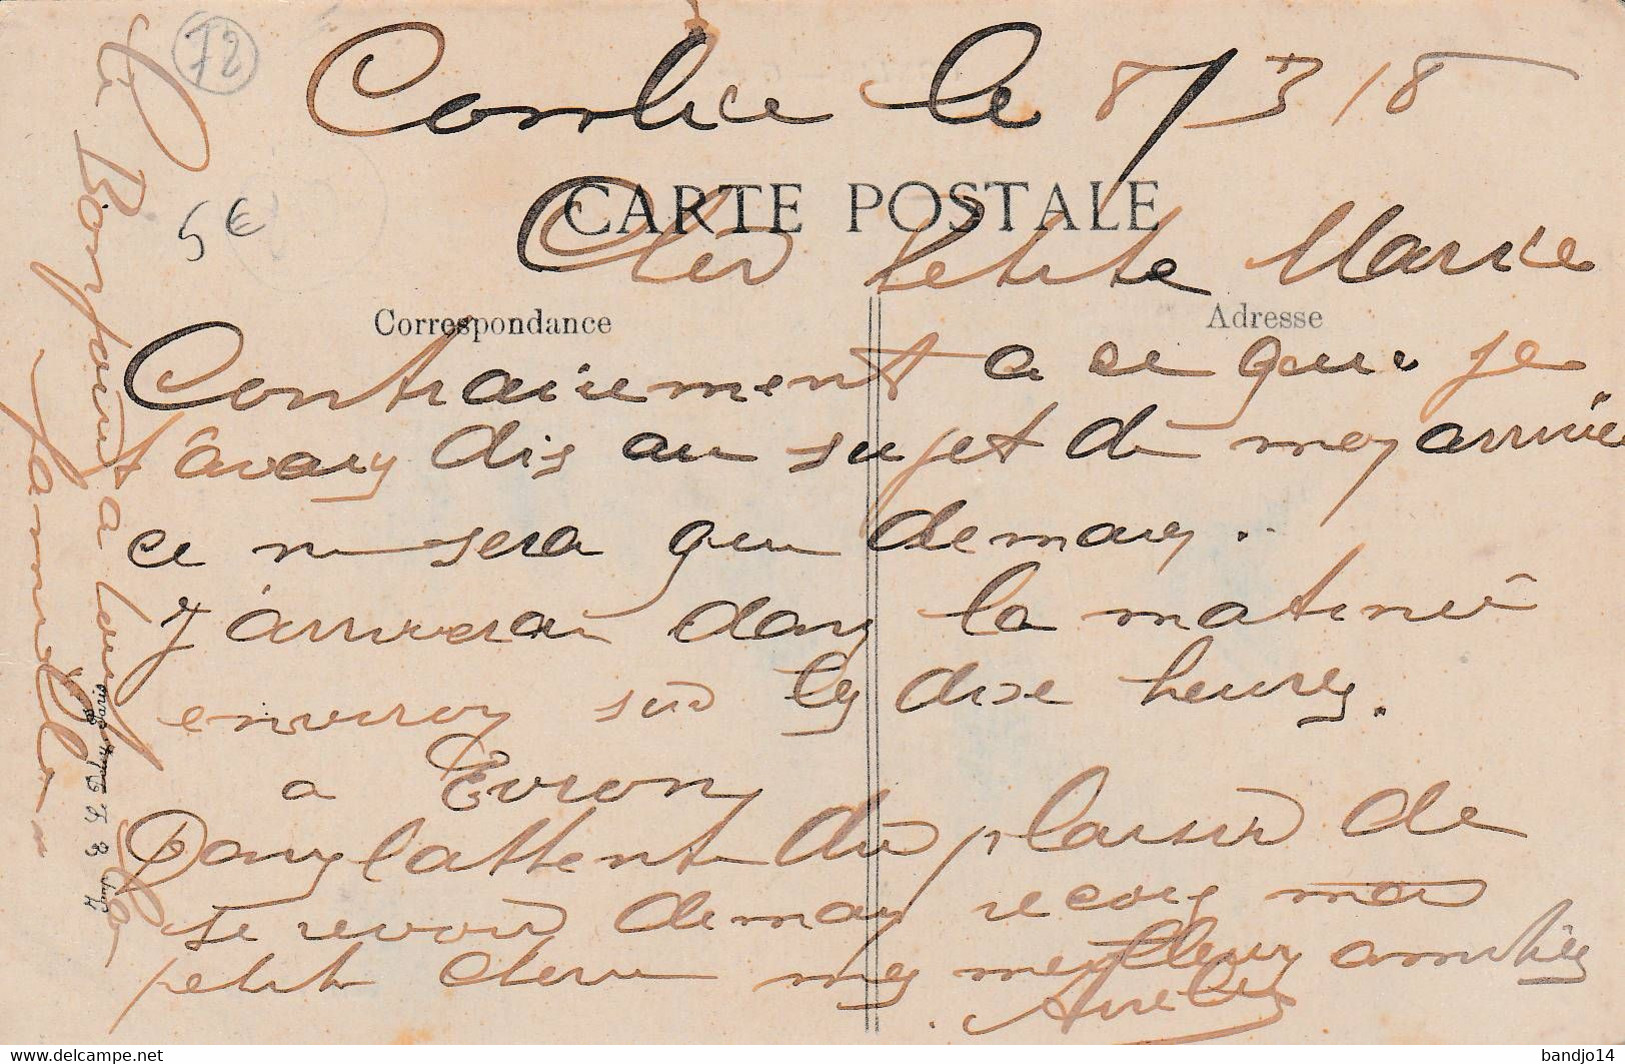 72
Conlie le 8/3/18
CARTE POSTALE
Cher petite Marie
Correspondance
Adresse
5€
Contrairement a ce que je
t'avais dis au sujet de mon arrivée
ce ne sera que demain.
J'arriverai dans la matinée
environ sur les dix heures.
a Evron
Dans l'attente du plaisir de
te revoir demain recois ma
petite cherie mes meilleurs amitiés
Le Bonjour a toute la
famille
Imp. E. L. D.
Paris
www.delcampe.net
bandjo14